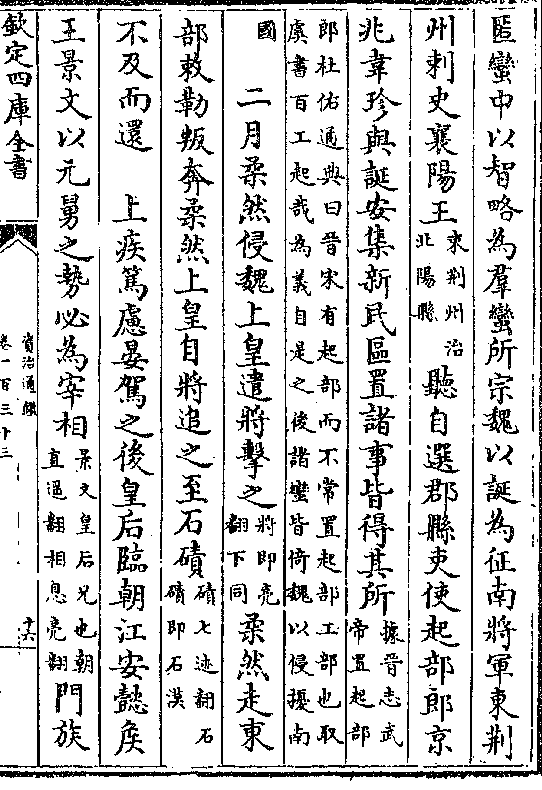 匿蠻中以智略為羣蠻所宗魏以誕為征南將軍東荆
州刺史襄陽王東荆州治北陽縣聽自選郡縣吏使起部郎京
兆韋珍與誕安集新民區置諸事皆得其所據晉志武帝置起部
郎杜佑通典曰晉宋有起部而不常置起部工部也取
虞書百工起哉為義自是之後諸蠻皆倚魏以侵擾南
國 二月柔然侵魏上皇遣將擊之將即亮翻下同柔然走東
部敕勒叛奔柔然上皇自將追之至石磧磧七迹翻石磧即石漠
不及而還 上疾篤慮晏駕之後皇后臨朝江安懿侯
王景文以元舅之勢必為宰相景文皇后兄也朝直遥翻相息亮翻門族
欽定四庫全書
資治通鑑
卷一百三十三
十六